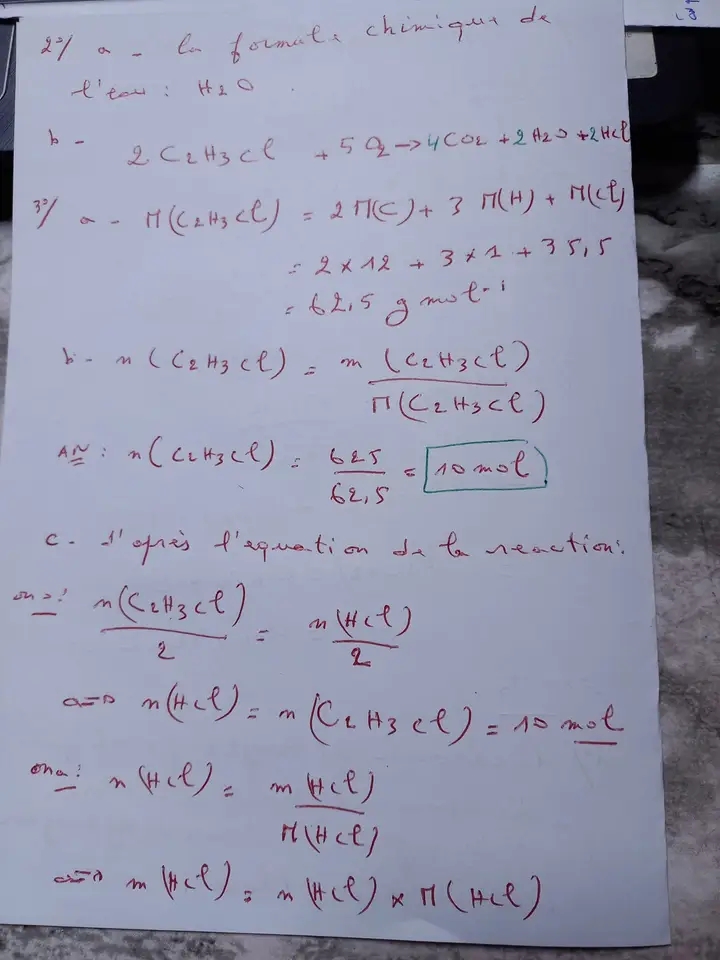 2°/ a - la formule chimique de
l'eau : H2O.
b - 2 C2H3Cl + 5 O2 → 4CO2 + 2H2O + 2HCl
3°/ a - M(C2H3Cl) = 2 M(C) + 3 M(H) + M(Cl)
= 2 x 12 + 3 x 1 + 35,5
= 62,5 g mol-1
b - n(C2H3Cl) = m(C2H3Cl) / M(C2H3Cl)
AN : n(C2H3Cl) = 625 / 62,5 = 10 mol
c - d'après l'equation de la reaction:
on a: n(C2H3Cl) / 2 = n(HCl) / 2
⇒ n(HCl) = n(C2H3Cl) = 10 mol
on a: n(HCl) = m(HCl) / M(HCl)
⇒ m(HCl) = n(HCl) x M(HCl)